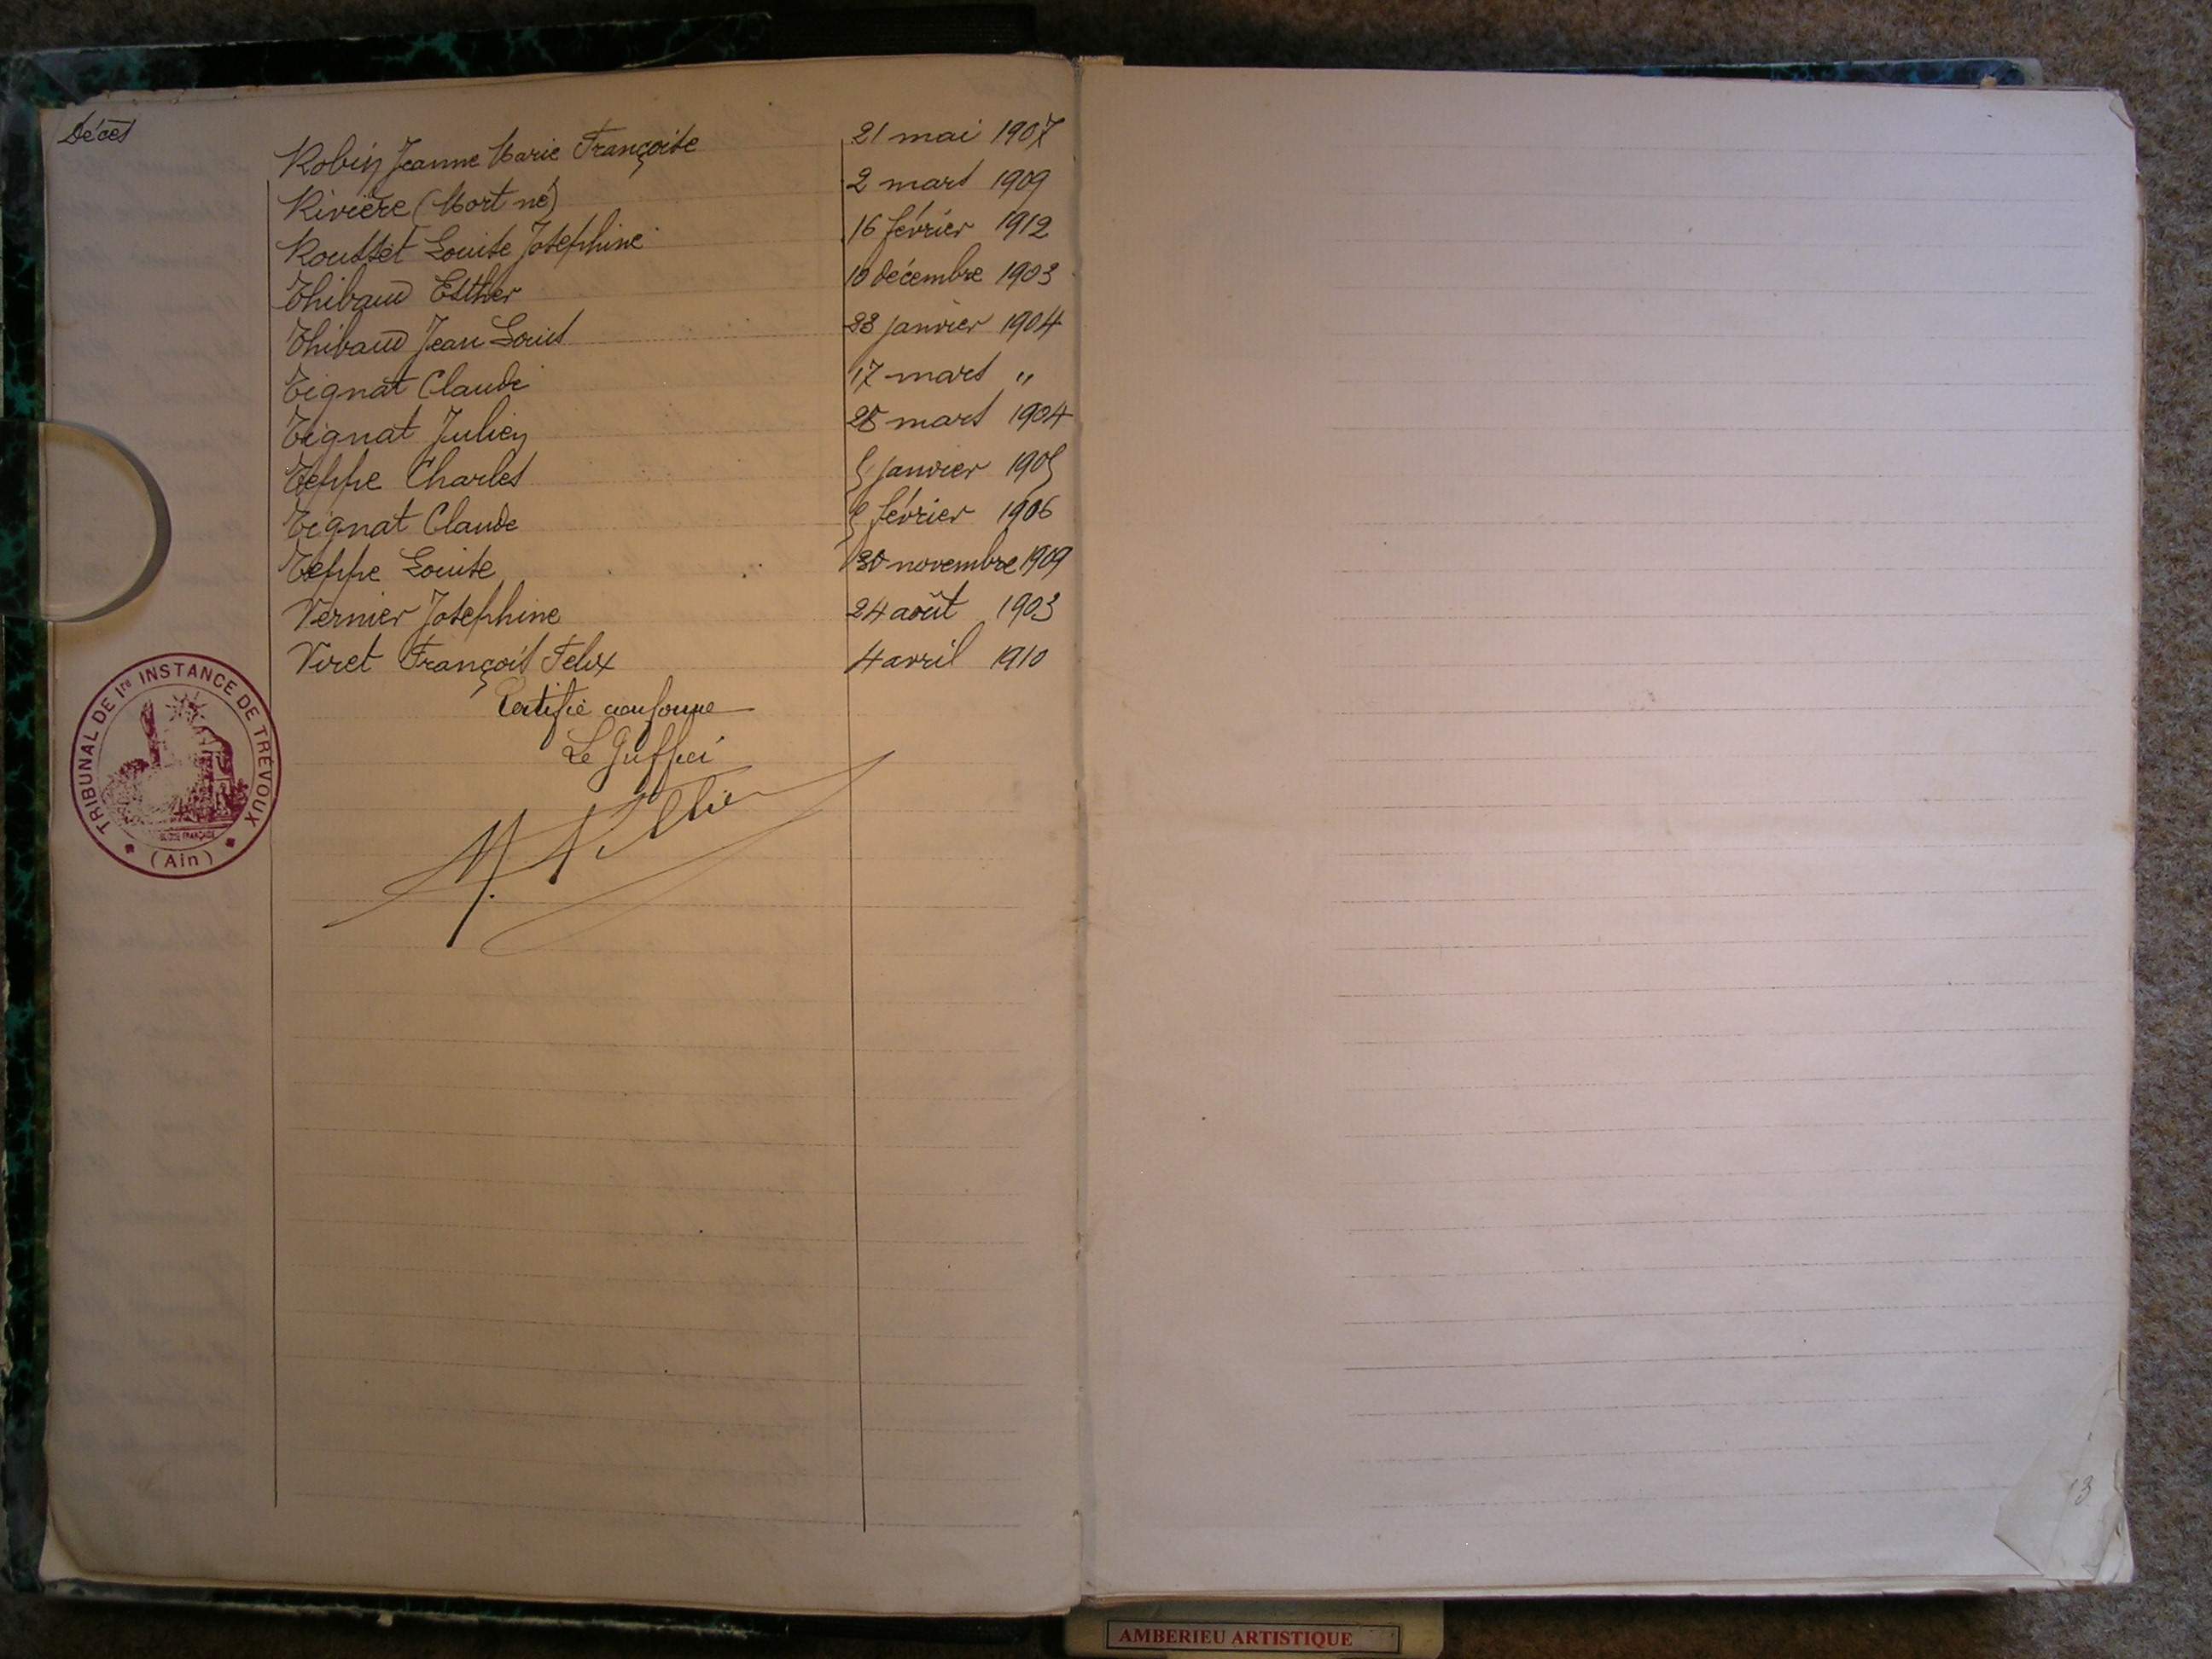 Décès
Robin Jeanne Marie Françoise 21 mai 1907
Rivière (Mort né) 2 mars 1909
Rousset Louise Josephine 16 février 1912
Thibaud Esther 10 décembre 1903
Thibaud Jean Louis 23 janvier 1904
Tignat Claude 17 mars "
Tignat Julien 28 mars 1904
Teppe Charles 5 janvier 1905
Tignat Claude février 1906
Teppe Louise 30 novembre 1909
Vernier Josephine 24 août 1903
Viret François Felix 4 avril 1910
Certifié conforme
Le Greffier
TRIBUNAL DE 1re INSTANCE DE TRÉVOUX
(Ain)
13
AMBERIEU ARTISTIQUE